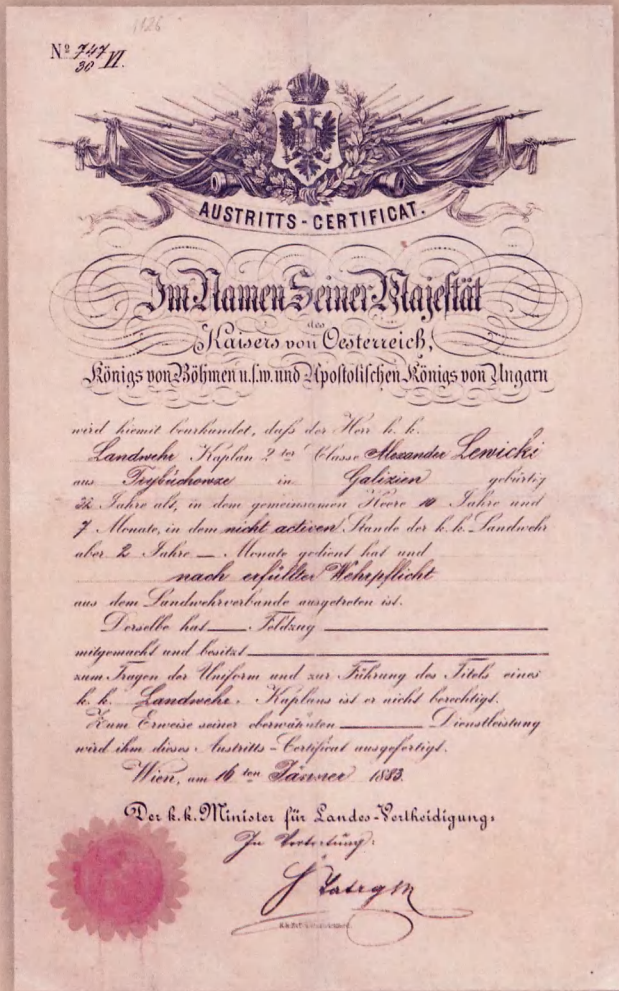 1126
Nº 747/30 VI.
AUSTRITTS-CERTIFICAT.
Im Namen Seiner Majestät
des
Kaisers von Oesterreich,
Königs von Böhmen u.s.w. und Apostolischen Königs von Ungarn
wird hiemit beurkundet, daß der Herr k. k.
Landwehr Kaplan 2ter Classe Alexander Lewicki
aus Trybuchowze in Galizien gebürtig
Jahre alt, in dem gemeinsamen Heere 10 Jahre und
7 Monate, in dem nicht activen Stande der k. k. Landwehr
aber 2 Jahre — Monate gedient hat und
nach erfüllter Wehrpflicht
aus dem Landwehrverbande ausgetreten ist.
Derselbe hat Feldzug
mitgemacht und besitzt
zum Tragen der Uniform und zur Führung des Titels eines
k. k. Landwehr-Kaplans ist er nicht berechtigt.
Zum Erweise seiner oberwähnten Dienstleistung
wird ihm dieses Austritts-Certificat ausgefertigt.
Wien, am 16ten Jänner 1883.
Der k. k. Minister für Landes-Vertheidigung:
In Vertretung: